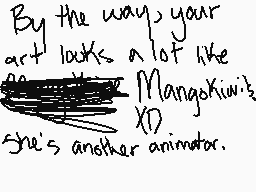 By the way, your
art looks a lot like
MangoKiwi's
XD
She's another animator.